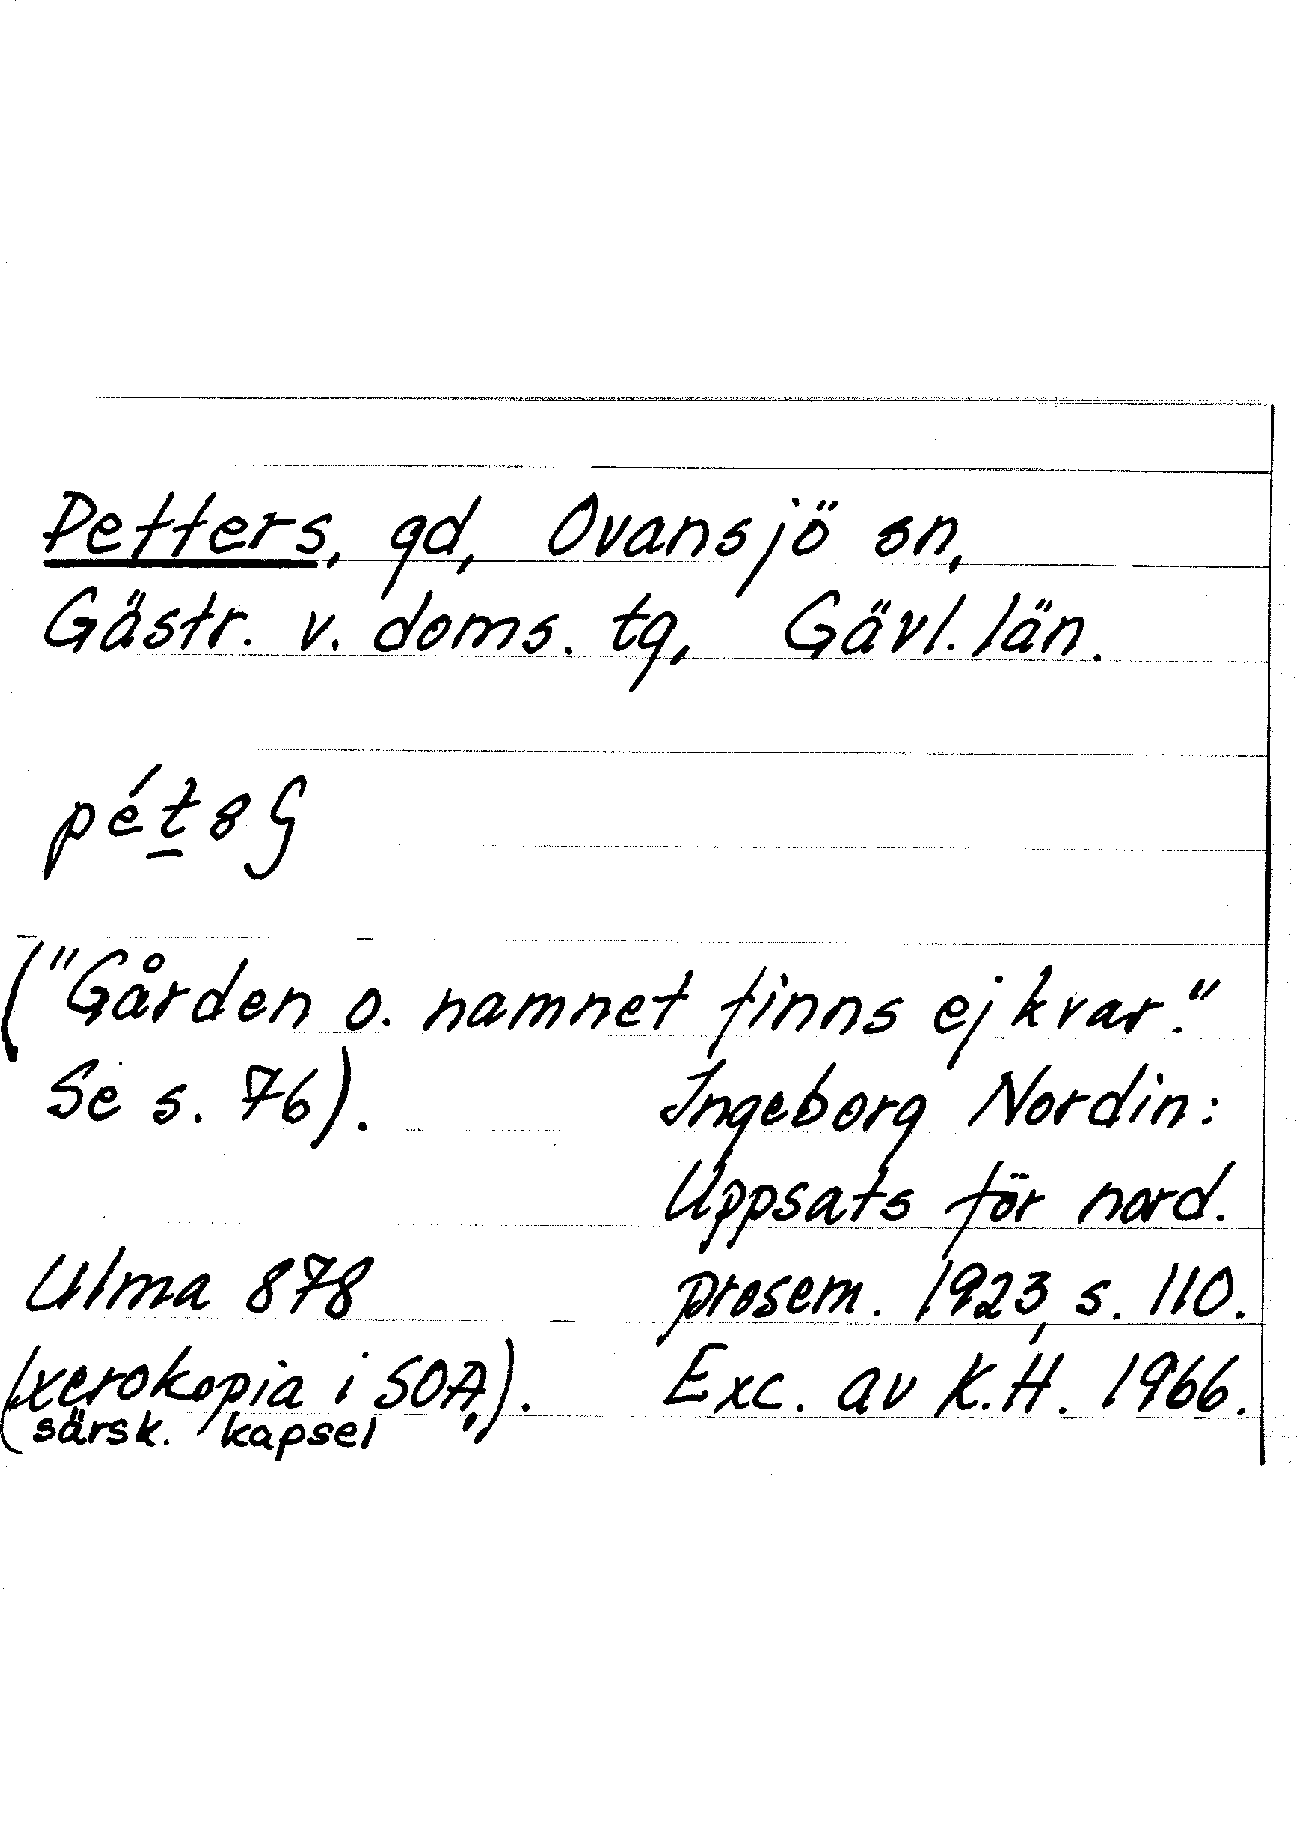 Petters, gd, Ovansjö sn,
Gästr. v. doms. tg, Gävl. län.
("Gården o. namnet finns ej kvar."
Se s. 76).
Ingeborg Nordin:
Uppsats för nord.
prosem. 1923, s. 110.
Exc. av K.H. 1966.
Ulma 878
(xerokopia i SOA,).
särsk. kapsel